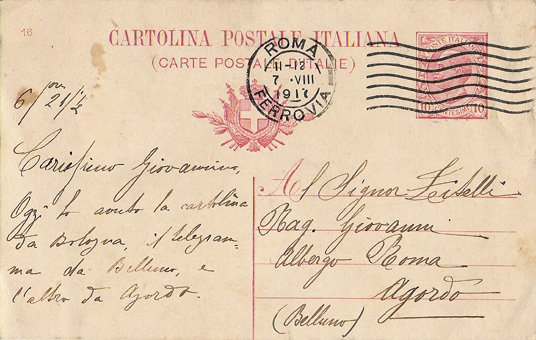 16
CARTOLINA POSTALE ITALIANA
(CARTE POSTALE D'ITALIE)
ROMA
11-12
7 · VIII
1917
FERROVIA
POSTE ITALIANE
10 CENTESIMI 10
6/ ore 21½
Carissimo Giovannino,
Oggi ho avuto la cartolina
da Bologna, il telegram-
ma da Belluno, e
l'altro da Agordo.
Al Signor
Rag. Giovanni
Albergo Roma
Agordo
(Belluno)